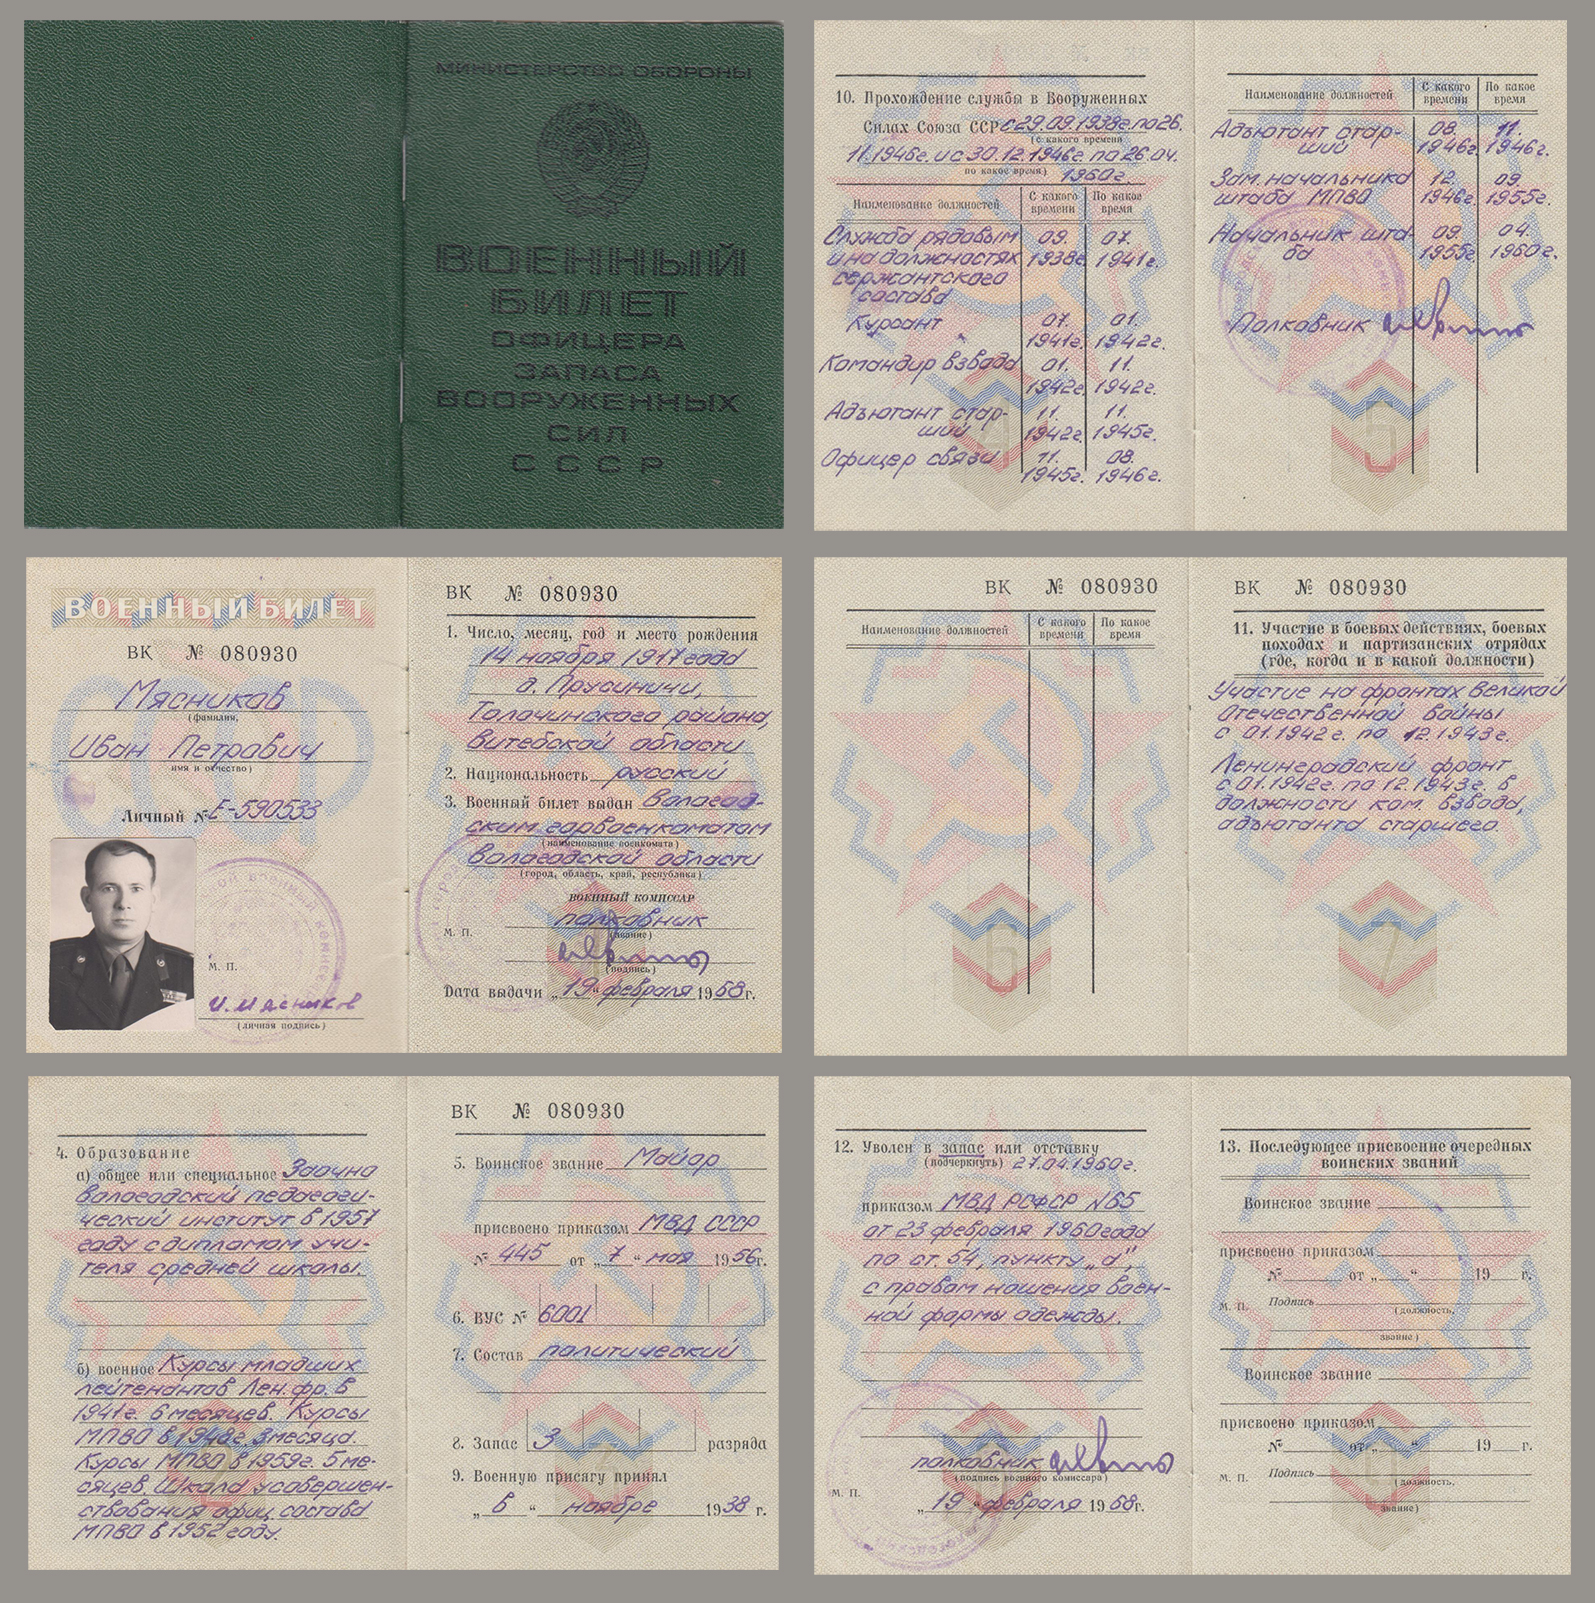 МИНИСТЕРСТВО ОБОРОНЫ
ВОЕННЫЙ
БИЛЕТ
ОФИЦЕРА
ЗАПАСА
ВООРУЖЕННЫХ
СИЛ
СССР
ВОЕННЫЙ БИЛЕТ
ВК № 080930
Мясников
(фамилия,
Иван Петрович
имя и отчество)
Личный № Е-590533
М. П.
И. Мясников
(личная подпись)
ВК № 080930
1. Число, месяц, год и место рождения
14 ноября 1917 года
д. Прусиничи,
Толочинского района,
Витебской области
2. Национальность русский
3. Военный билет выдан Вологод-
ским горвоенкоматом
(наименование военкомата)
Вологодской области
(город, область, край, республика)
ВОЕННЫЙ КОМИССАР
полковник
(звание)
М. П.
(подпись)
Дата выдачи „19“ февраля 1968г.
1
4. Образование
а) общее или специальное Заочно
Вологодский педагоги-
ческий институт в 1957
году с дипломом учи-
теля средней школы.
б) военное Курсы младших
лейтенантов Лен. фр. в
1941г. 6 месяцев. Курсы
МПВО в 1948г. 3 месяца.
Курсы МПВО в 1959г. 5 ме-
сяцев. Школа усовершен-
ствования офиц. состава
МПВО в 1952 году.
2
ВК № 080930
5. Воинское звание Майор
присвоено приказом МВД СССР
№ 445 от „7“ мая 1956г.
6. ВУС № 6001
7. Состав политический
8. Запас 3 разряда
9. Военную присягу принял
„в“ ноябре 1938 г.
3
10. Прохождение службы в Вооруженных
Силах Союза ССР с 29.09.1938г. по 26.
(с какого времени
11.1946г. и с 30.12.1946г. по 26.04.
по какое время) 1960г.
Наименование должностей С какого времени По какое время
Служба рядовым 09. 07.
и на должностях 1938г. 1941г.
сержантского
состава
Курсант 07. 01.
1941г. 1942г.
Командир взвода 01. 11.
1942г. 1942г.
Адъютант стар- 11. 11.
ший 1942г. 1945г.
Офицер связи 11. 08.
1945г. 1946г.
4
Наименование должностей С какого времени По какое время
Адъютант стар- 08. 11.
ший 1946г. 1946г.
Зам. начальника 12. 09.
штаба МПВО 1946г. 1955г.
Начальник шта- 09. 04.
ба 1955г. 1960г.
Полковник
5
ВК № 080930
Наименование должностей С какого времени По какое время
6
ВК № 080930
11. Участие в боевых действиях, боевых
походах и партизанских отрядах
(где, когда и в какой должности)
Участие на фронтах Великой
Отечественной войны
с 01.1942г. по 12.1943г.
Ленинградский фронт
с 01.1942г. по 12.1943г. в
должности ком. взвода,
адъютанта старшего.
7
12. Уволен в запас или отставку
(подчеркнуть) 27.04.1960г.
приказом МВД РСФСР №65
от 23 февраля 1960 года
по ст. 54, пункту „а“,
с правом ношения воен-
ной формы одежды.
полковник
(подпись военного комиссара)
М. П.
„19“ февраля 1968г.
13. Последующее присвоение очередных
воинских званий
Воинское звание
присвоено приказом
№ от „ “ 19 г.
М. П. Подпись
(должность,
звание)
Воинское звание
присвоено приказом
№ от „ “ 19 г.
М. П. Подпись
(должность,
звание)